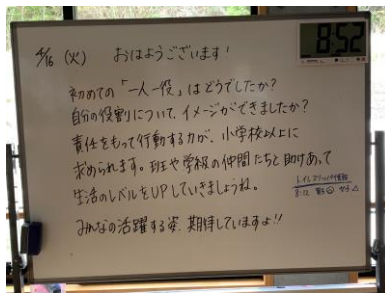 4/16 (火) おはようございます!
8:52
初めての「一人一役」はどうでしたか?
自分の役割について、イメージができましたか?
責任をもって行動する力が、小学校以上に
求められます。班や学級の仲間たちと助けあって
生活のレベルをUPしていきましょうね。
みんなの活躍する姿、期待していますよ!!
トイレスリッパ
8:12